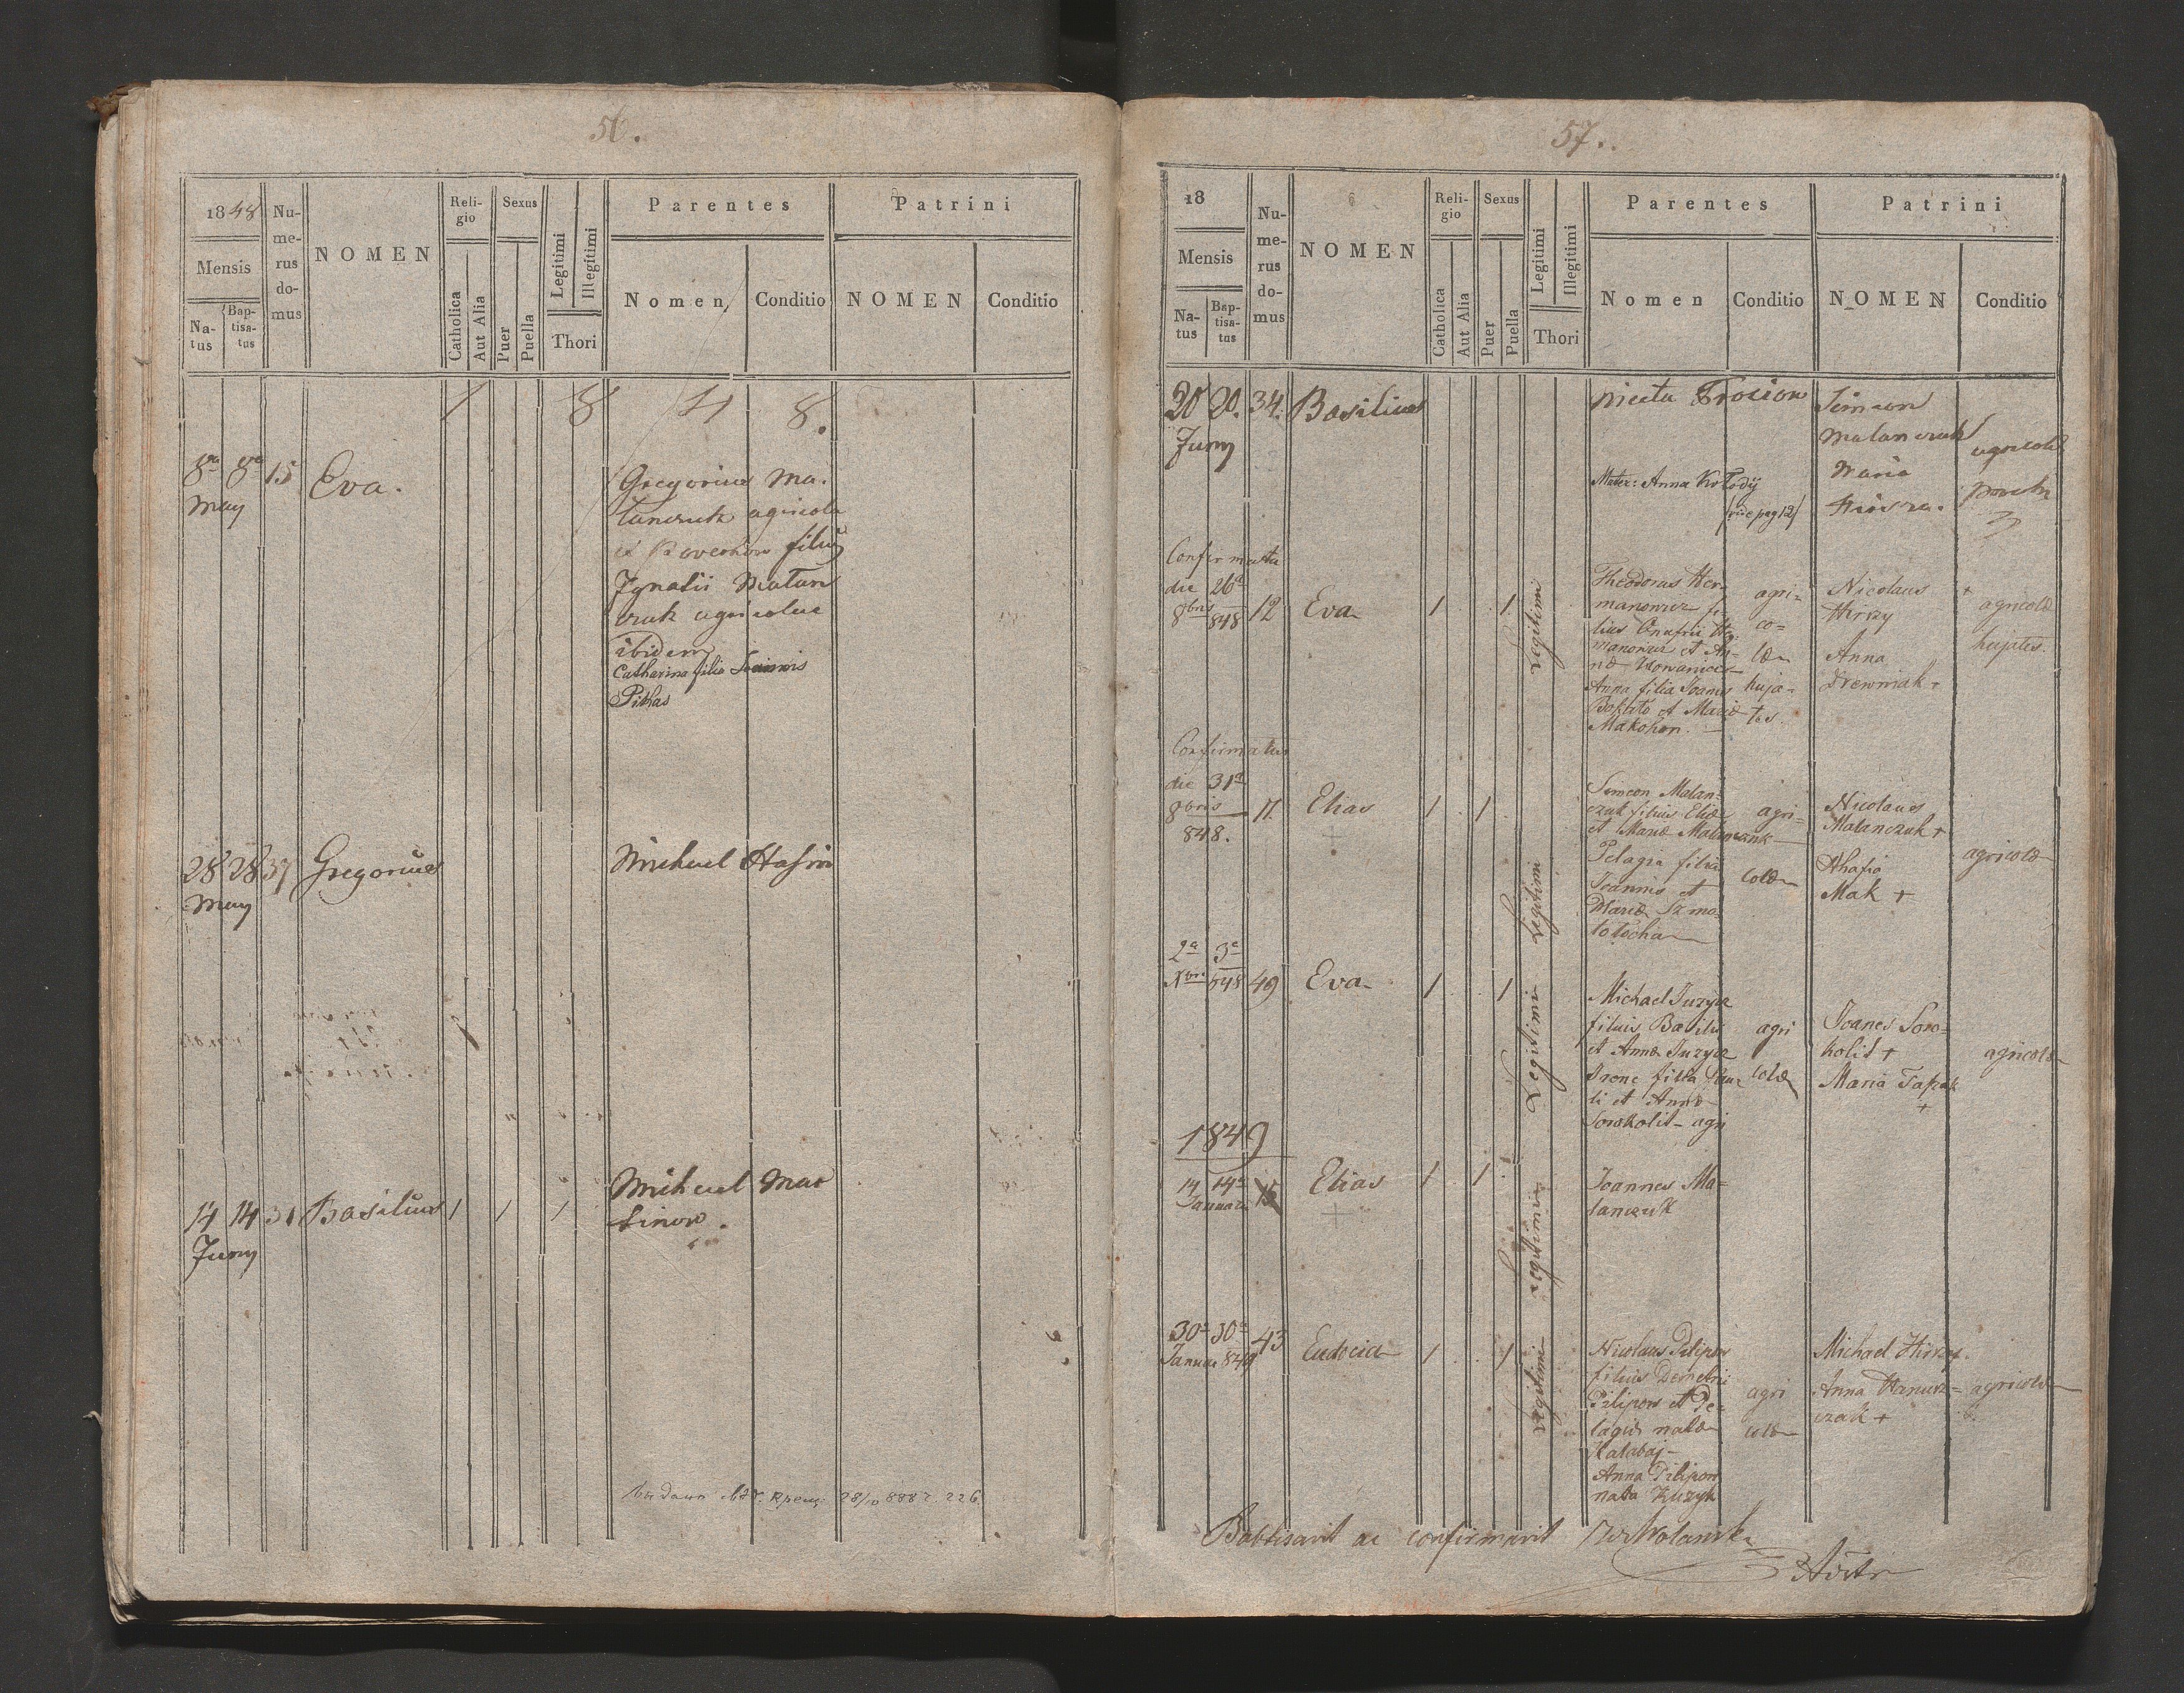 51.
1848
Mensis
Na-
tus
Bap-
tisa-
tus
Nu-
me-
rus
do-
mus
NOMEN
Reli-
gio
Catholica
Aut Alia
Sexus
Puer
Puella
Legitimi
Illegitimi
Thori
Parentes
Nomen
Conditio
Patrini
NOMEN
Conditio
1 8 4 8.
8va 8va 15 Eva.
May
Gregorius Ma-
lanczuk agricola
filius
Ignatii Malan
czuk agricolae
ibidem
Catharina filia Joannis
Pithas
28 28 37 Gregorius
May
Michael Hasiw
14 14 31 Basilius 1 1 1
Juny
Michael Mar
cinow.
28/10 888 г. 226
57.
18
Mensis
Na-
tus
Bap-
tisa-
tus
Nu-
me-
rus
do-
mus
NOMEN
Reli-
gio
Catholica
Aut Alia
Sexus
Puer
Puella
Legitimi
Illegitimi
Thori
Parentes
Nomen
Conditio
Patrini
NOMEN
Conditio
20 20. 34. Basilius
Juny
Niceta Trocion
Mater: Anna Kołodij
(vide pag 12)
Simeon
Malanczuk
Maria
agricolae
Confirmata
die 26a
8bris 848 12 Eva 1 1 Legitimi
Theodorus Her-
manowicz fi-
lius Onufrii He-
manowicz et An-
nae
Anna filia Joannis
et Mariae
Makohon.
agri-
co-
lae
huja-
tes.
Nicolaus +
Hirzy
Anna
Drewniak +
agricolae
hujates.
Confirmatus
die 31a
8bris
848. 11. Elias 1 1 Legitimi
Simeon Malan-
czuk filius Eliae
et Mariae Malanczuk
Pelagia filia
Joannis et
Mariae Szmo-
totocha
agri-
colae
Nicolaus
Malanczuk +
Ahafia
Mak +
agricolae
2a 3a
Xbri 848 49 Eva 1 1 Legitimi
Michael Juzyk
filius Basilii
et Annae Juzyk
Irene filia Pau-
li et Annae
Sorokolit - agri
agri
colae
Joanes Soro-
kolit +
Maria Tapak
+
agricolae
1849
14 14a 15 Elias 1 1 Legitimi
Januarii
Joannes Ma-
lanczuk
30a 30a 43 Eudocia 1 1 Legitimi
Januar 849
Nicolaus Pilipow
filius Demetrii
Pilipow et Pe-
lagiae natae
Kalabaj -
Anna Pilipow
nata Kuzyk
agri
colae
Michael Hirzy.
Anna Hanusz-
czak +
agricolae
Babtisavit ac confirmavit Wolanski